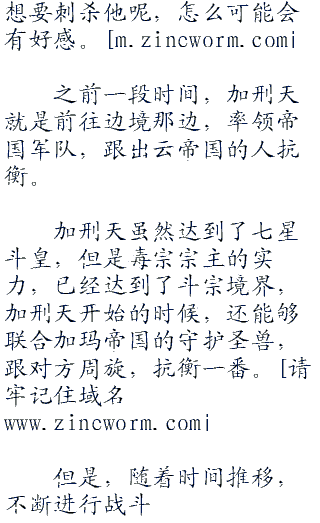 想要刺杀他呢，怎么可能会
有好感。[m.zincworm.com|
之前一段时间，加刑天
就是前往边境那边，率领帝
国军队，跟出云帝国的人抗
衡。
加刑天虽然达到了七星
斗皇，但是毒宗宗主的实
力，已经达到了斗宗境界，
加刑天开始的时候，还能够
联合加玛帝国的守护圣兽，
跟对方周旋，抗衡一番。[请
牢记住域名
www.zincworm.com|
但是，随着时间推移，
不断进行战斗